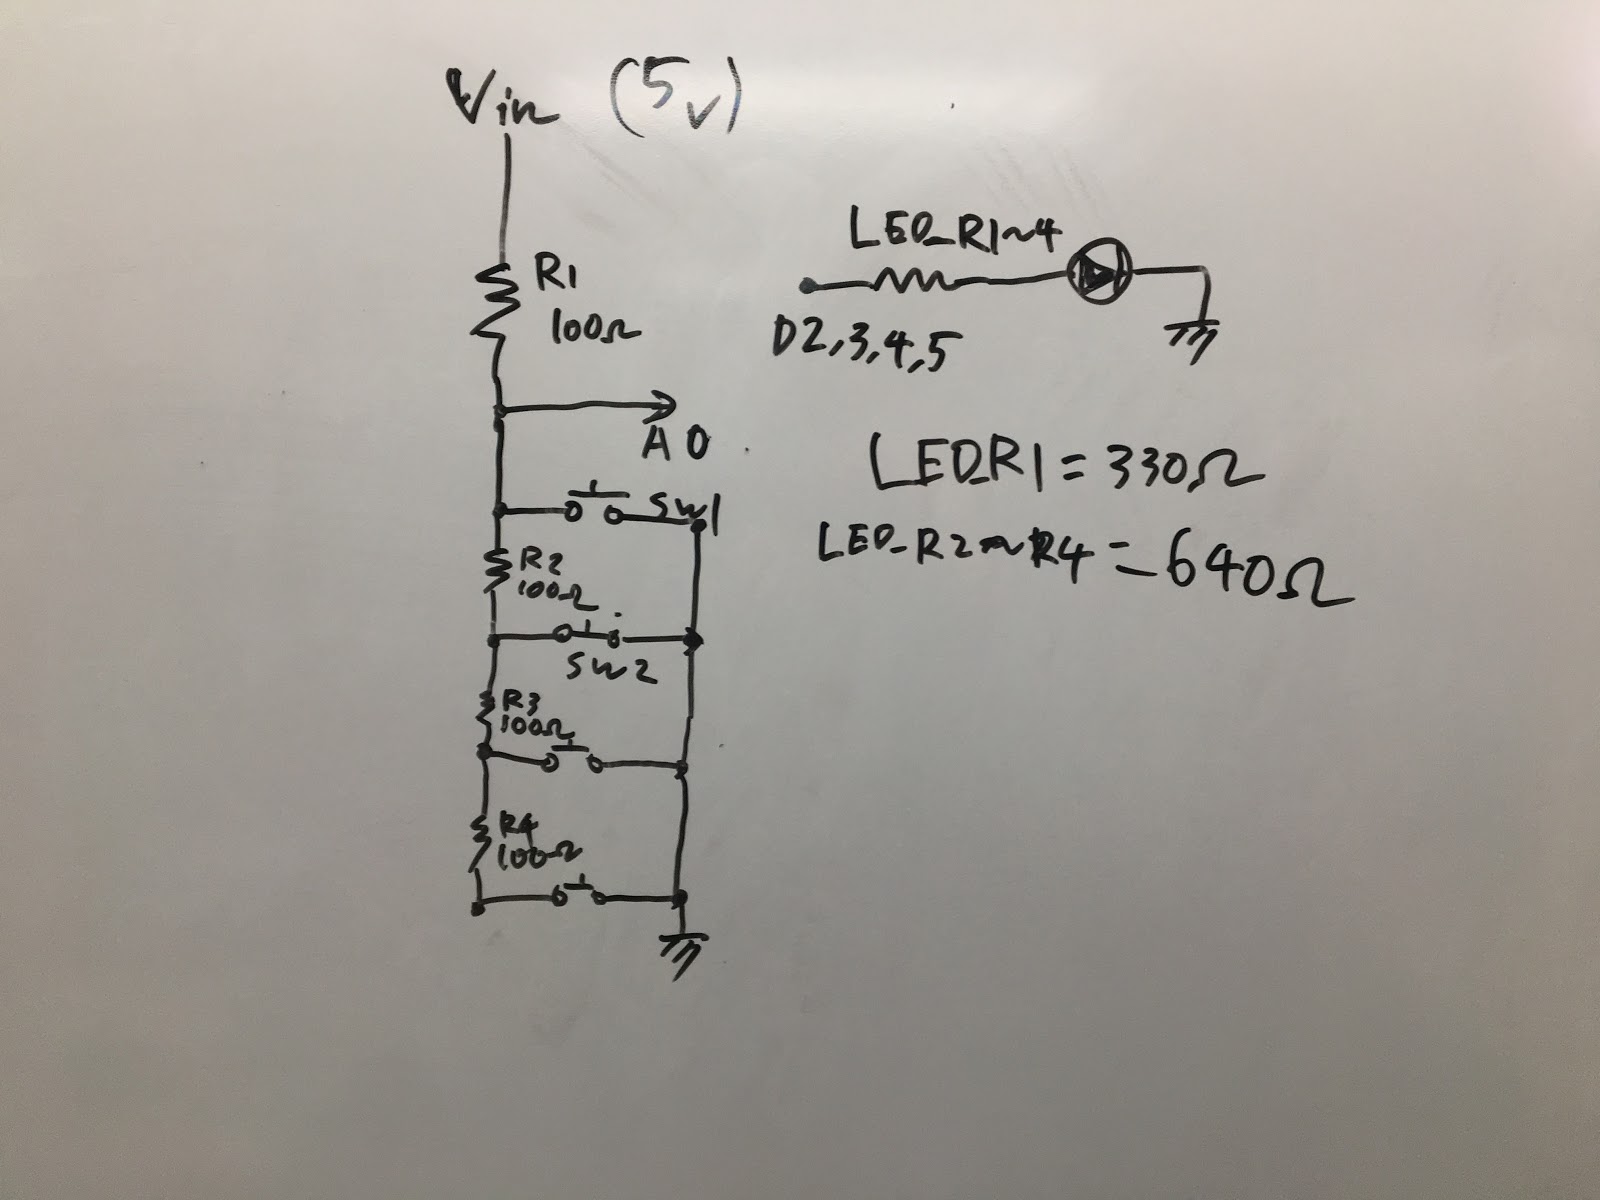 Vin (5v)
R1
100Ω
A0
SW1
R2
100Ω
SW2
R3
100Ω
R4
100Ω
LED_R1~4
D2,3,4,5
LED_R1=330Ω
LED_R2~R4=640Ω